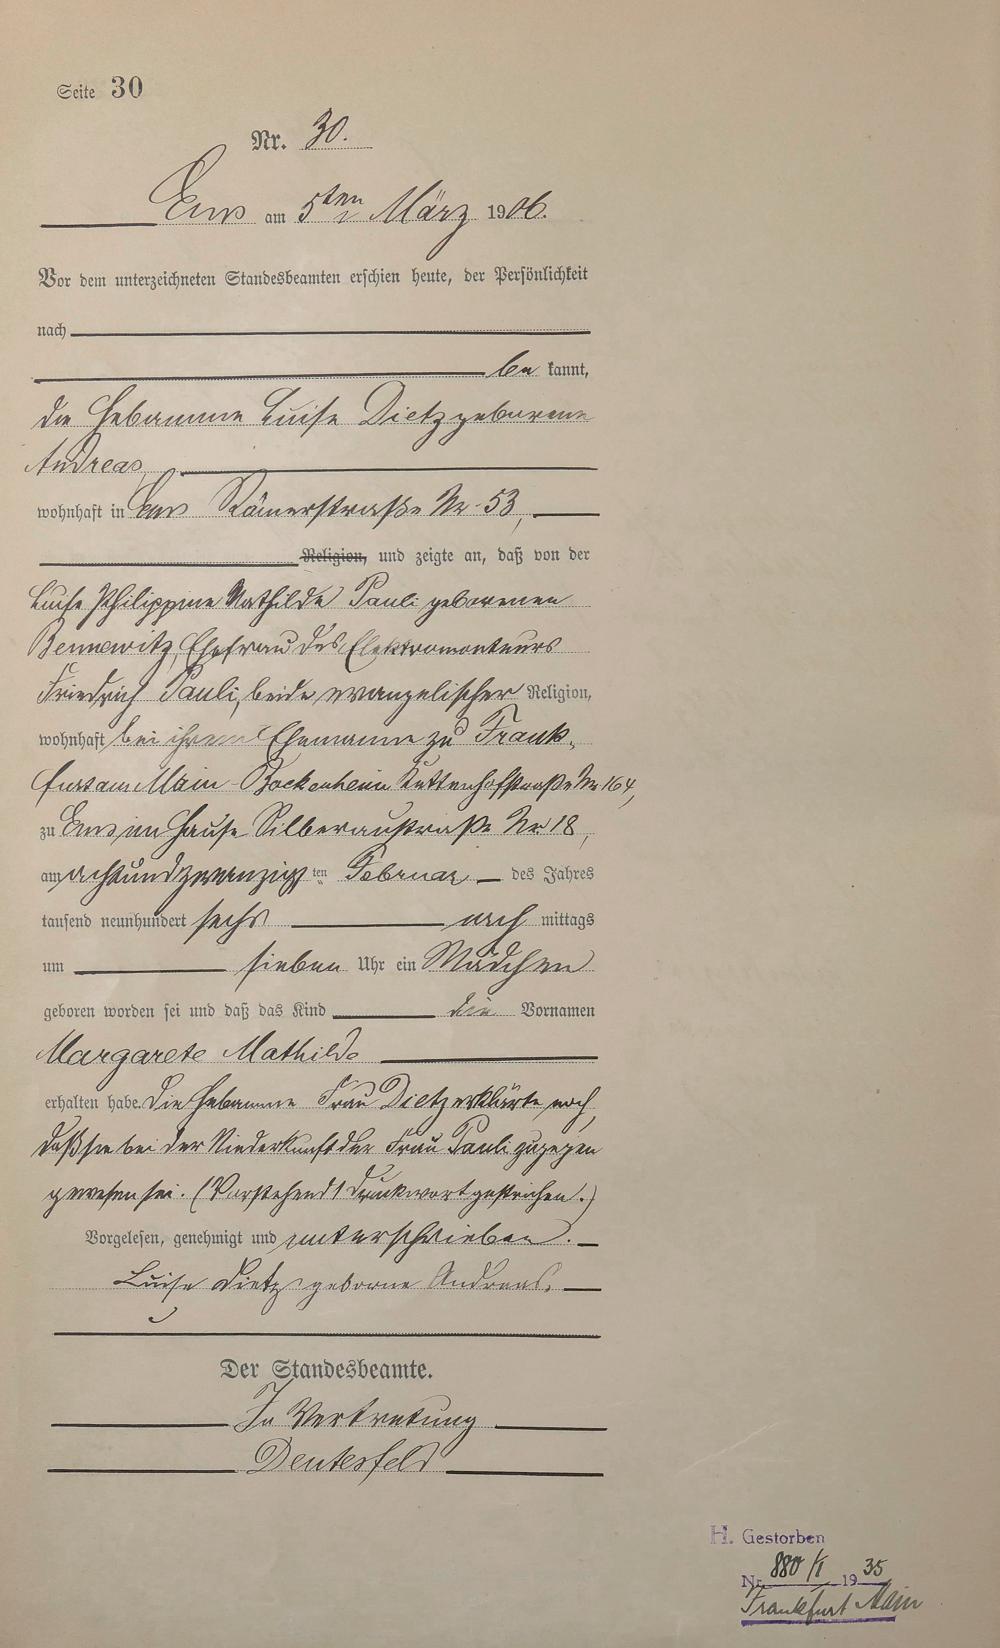 Seite 30
Nr. 30.
Ems am 5ten März 1906.
Vor dem unterzeichneten Standesbeamten erschien heute, der Persönlichkeit
nach
be kannt,
die Hebamme Luise Dietz geborene
Andreas,
wohnhaft in Ems Römerstraße Nr. 53,
Religion, und zeigte an, daß von der
Luise Philippine Mathilde Pauli geborenen
Bennewitz, Ehefrau des Elektromonteurs
Friedrich Pauli, beide evangelischer Religion,
wohnhaft bei ihrem Ehemanne zu Frank-
furt am Main-Bockenheim Kettenhofstraße Nr 164,
zu Ems im Hause Silberaustraße Nr. 18,
am achtundzwanzigsten Februar des Jahres
tausend neunhundert sechs nach mittags
um sieben Uhr ein Mädchen
geboren worden sei und daß das Kind die Vornamen
Margarete Mathilde
erhalten habe. Die Hebamme Frau Dietz erklärte noch,
daß sie bei der Niederkunft der Frau Pauli zugegen
gewesen sei. (Vorstehend 1 Druckwort gestrichen.)
Vorgelesen, genehmigt und unterschrieben.
Luise Dietz geborne Andreas.
Der Standesbeamte.
In Vertretung
Deutesfeld
H. Gestorben
Nr. 880/I 1935
Frankfurt Main